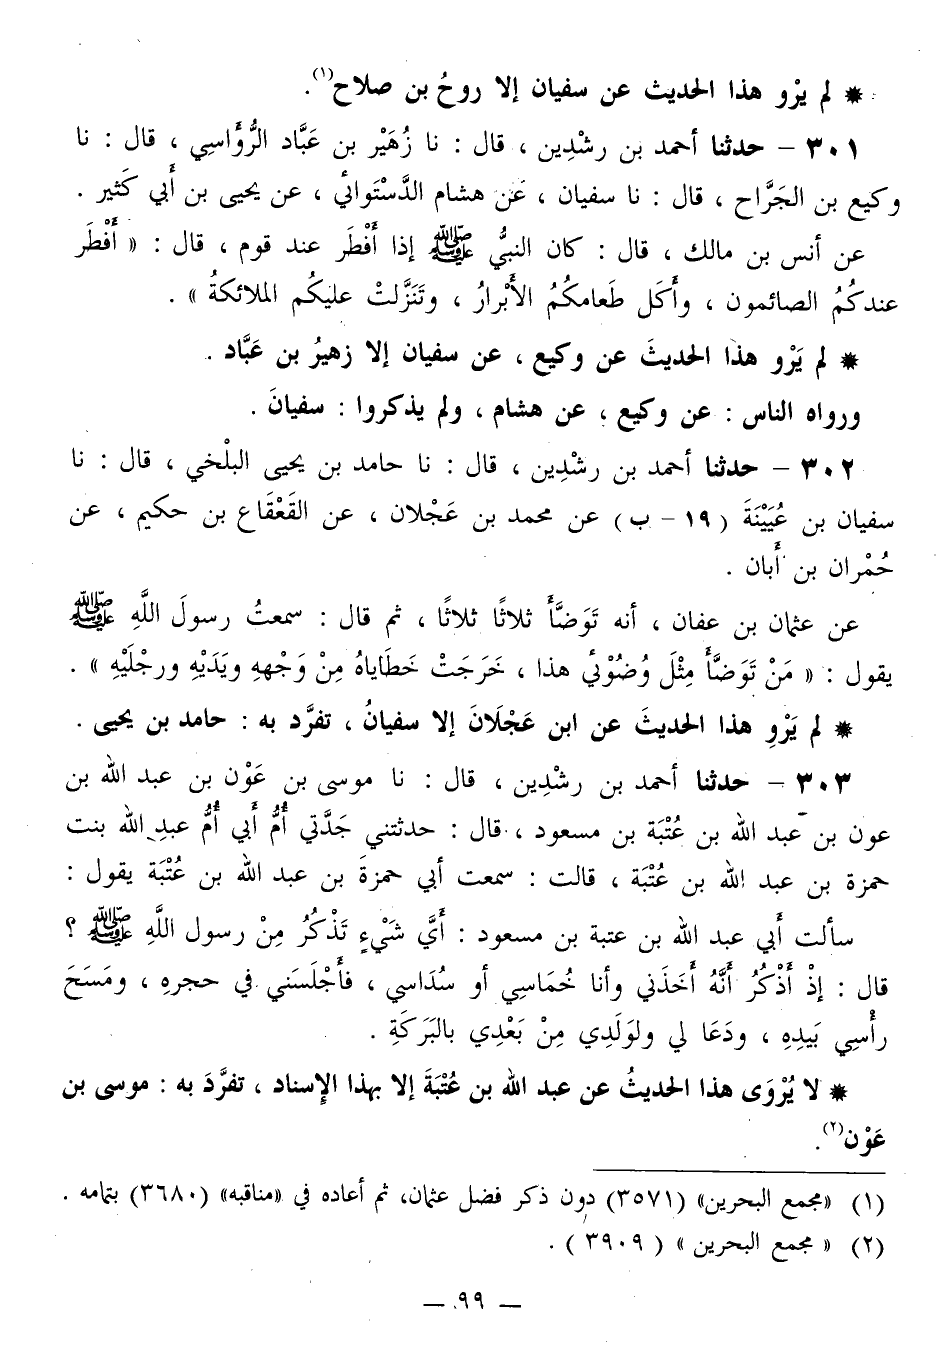 * لم يرْو هذا الحديث عن سفيان إلا روحُ بن صلاح(١).
٣٠١ - حدثنا أحمد بن رشْدِين ، قال : نا زُهَيْر بن عَبَّاد الرُّؤَاسِي ، قال : نا
وكيع بن الجَرَّاح ، قال : نا سفيان ، عَن هشام الدَّسْتَوائي ، عن يحيى بن أَبي كَثير .
عن أنس بن مالك ، قال : كان النبيُّ ﷺ إذا أَفْطَر عند قوم ، قال : « أَفْطَر
عندكُمُ الصائمون ، وأَكَل طَعامكُمُ الأَبْرارُ ، وتَنَزَّلتْ عليكُم الملائكةُ » .
* لم يَرْو هذا الحديثَ عن وكيع ، عن سفيان إلا زهيرُ بن عَبَّاد .
ورواه الناس : عن وكيع ، عن هشام ، ولم يذكروا : سفيانَ .
٣٠٢ - حدثنا أحمد بن رشْدِين ، قال : نا حامد بن يحيى البلْخي ، قال : نا
سفيان بن عُيَيْنَةَ (١٩ - ب) عن محمد بن عَجْلان ، عن القَعْقَاع بن حكيم ، عن
حُمْران بن أَبان .
عن عثمان بن عفان ، أنه تَوَضَّأَ ثلاثًا ثلاثًا ، ثم قال : سمعتُ رسولَ اللَّهِ ﷺ
يقول : « مَنْ تَوَضَّأَ مِثْلَ وُضُوْئي هذا ، خَرَجَتْ خَطَاياهُ مِنْ وَجْههِ ويَدَيْهِ ورجْلَيْهِ » .
* لم يَرْوِ هذا الحديثَ عن ابن عَجْلَانَ إلا سفيانُ ، تفرَّد به : حامد بن يحيى .
٣٠٣ - حدثنا أحمد بن رشْدِين ، قال : نا موسى بن عَوْن بن عبد الله بن
عون بن عبد الله بن عُتْبَة بن مسعود ، قال : حدثتني جَدَّتي أُمُّ أَبي أُمُّ عبدِ الله بنت
حمزة بن عبد الله بن عُتْبَة ، قالت : سمعت أبي حمزةَ بن عبد الله بن عُتْبَة يقول :
سألت أَبي عبد الله بن عتبة بن مسعود : أَيَّ شَيْءٍ تَذْكُرُ مِنْ رسول اللَّهِ ﷺ ؟
قال : إذْ أَذْكُرُ أَنَّهُ أَخَذَني وأنا خُمَاسِي أو سُدَاسي ، فأَجْلَسَني في حجرهِ ، ومَسَحَ
رأْسِي بَيدِهِ ، ودَعَا لي ولوَلَدِي مِنْ بَعْدِي بالبَرَكَةِ .
* لا يُرْوَى هذا الحديثُ عن عبد الله بن عُتْبَةَ إلا بهذا الإِسناد ، تفرَّدَ به : موسى بن
عَوْن(٢).
(١) «مجمع البحرين» (٣٥٧١) دون ذكر فضل عثمان، ثم أعاده في «مناقبه» (٣٦٨٠) بتمامه .
(٢) « مجمع البحرين » ( ٣٩٠٩ ) .
— ٩٩ —